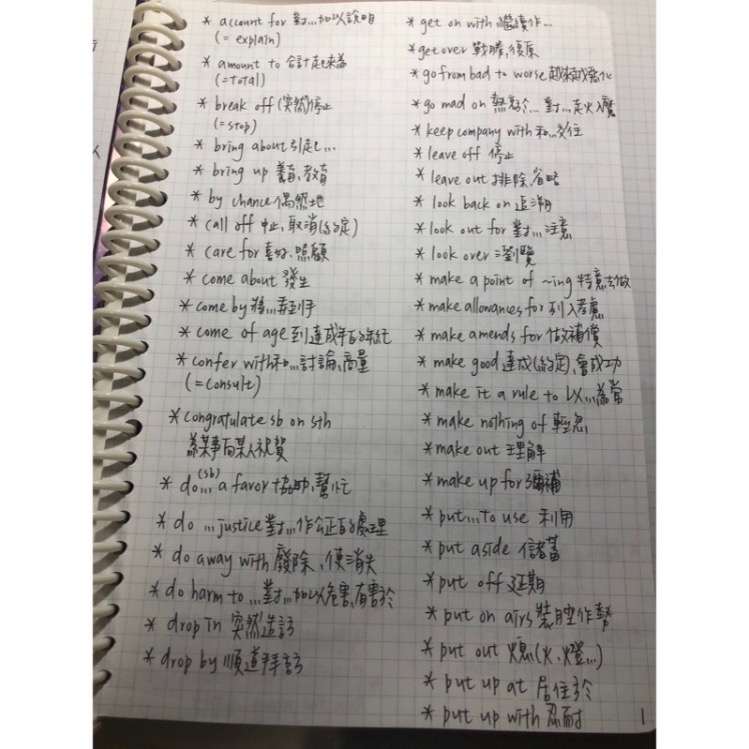 * account for 對...加以說明
(= explain)
* amount to 合計起來為
(=total)
* break off (突然)停止
(=stop)
* bring about 引起...
* bring up 養育,教育
* by chance 偶然地
* call off 中止,取消(約定)
* care for 喜好,照顧
* come about 發生
* come by 將...弄到手
* come of age 到達成年的年紀
* confer with 和...討論,商量
(=consult)
* congratulate sb on sth
為某事向某人祝賀
* do...(sb) a favor 協助,幫忙
* do ...justice 對...作公正的處理
* do away with 廢除、使消失
* do harm to ...對...加以危害,有害於
* drop in 突然造訪
* drop by 順道拜訪
* get on with 繼續作...
* get over 戰勝,復原
* go from bad to worse 越來越惡化
* go mad on 熱衷於...對...走火入魔
* keep company with 和...交往
* leave off 停止
* leave out 排除,省略
* look back on 追溯
* look out for 對...注意
* look over 瀏覽
* make a point of ~ing 特意去做
* make allowances for 列入考慮
* make amends for 做補償
* make good 達成(約定),會成功
* make it a rule to 以...為常
* make nothing of 輕忽
* make out 理解
* make up for 彌補
* put...to use 利用
* put aside 儲蓄
* put off 延期
* put on airs 裝腔作勢
* put out 熄(火、燈...)
* put up at 居住於
* put up with 忍耐
1